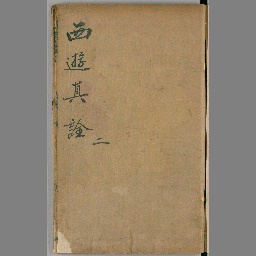 西遊真詮
二